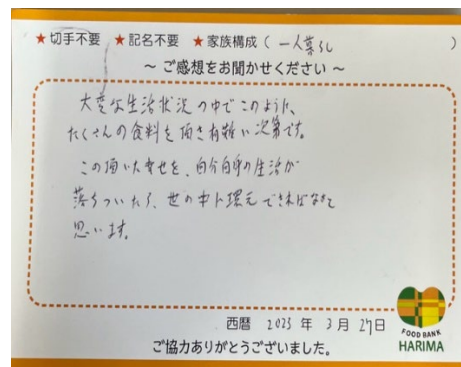 ★切手不要 ★記名不要 ★家族構成（ 一人暮し ）
～ ご感想をお聞かせください ～
大変な生活状況の中でこのように、
たくさんの食料を頂き有難い次第です。
この頂いた幸せを、自分自身の生活が
落ちついたら、世の中に還元できればなぁと
思います。
西暦 2023 年 3 月 27日
ご協力ありがとうございました。
FOOD BANK
HARIMA